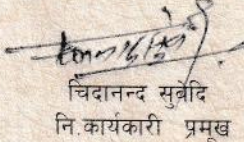 चिदानन्द सुवेदि
नि.कार्यकारी प्रमुख